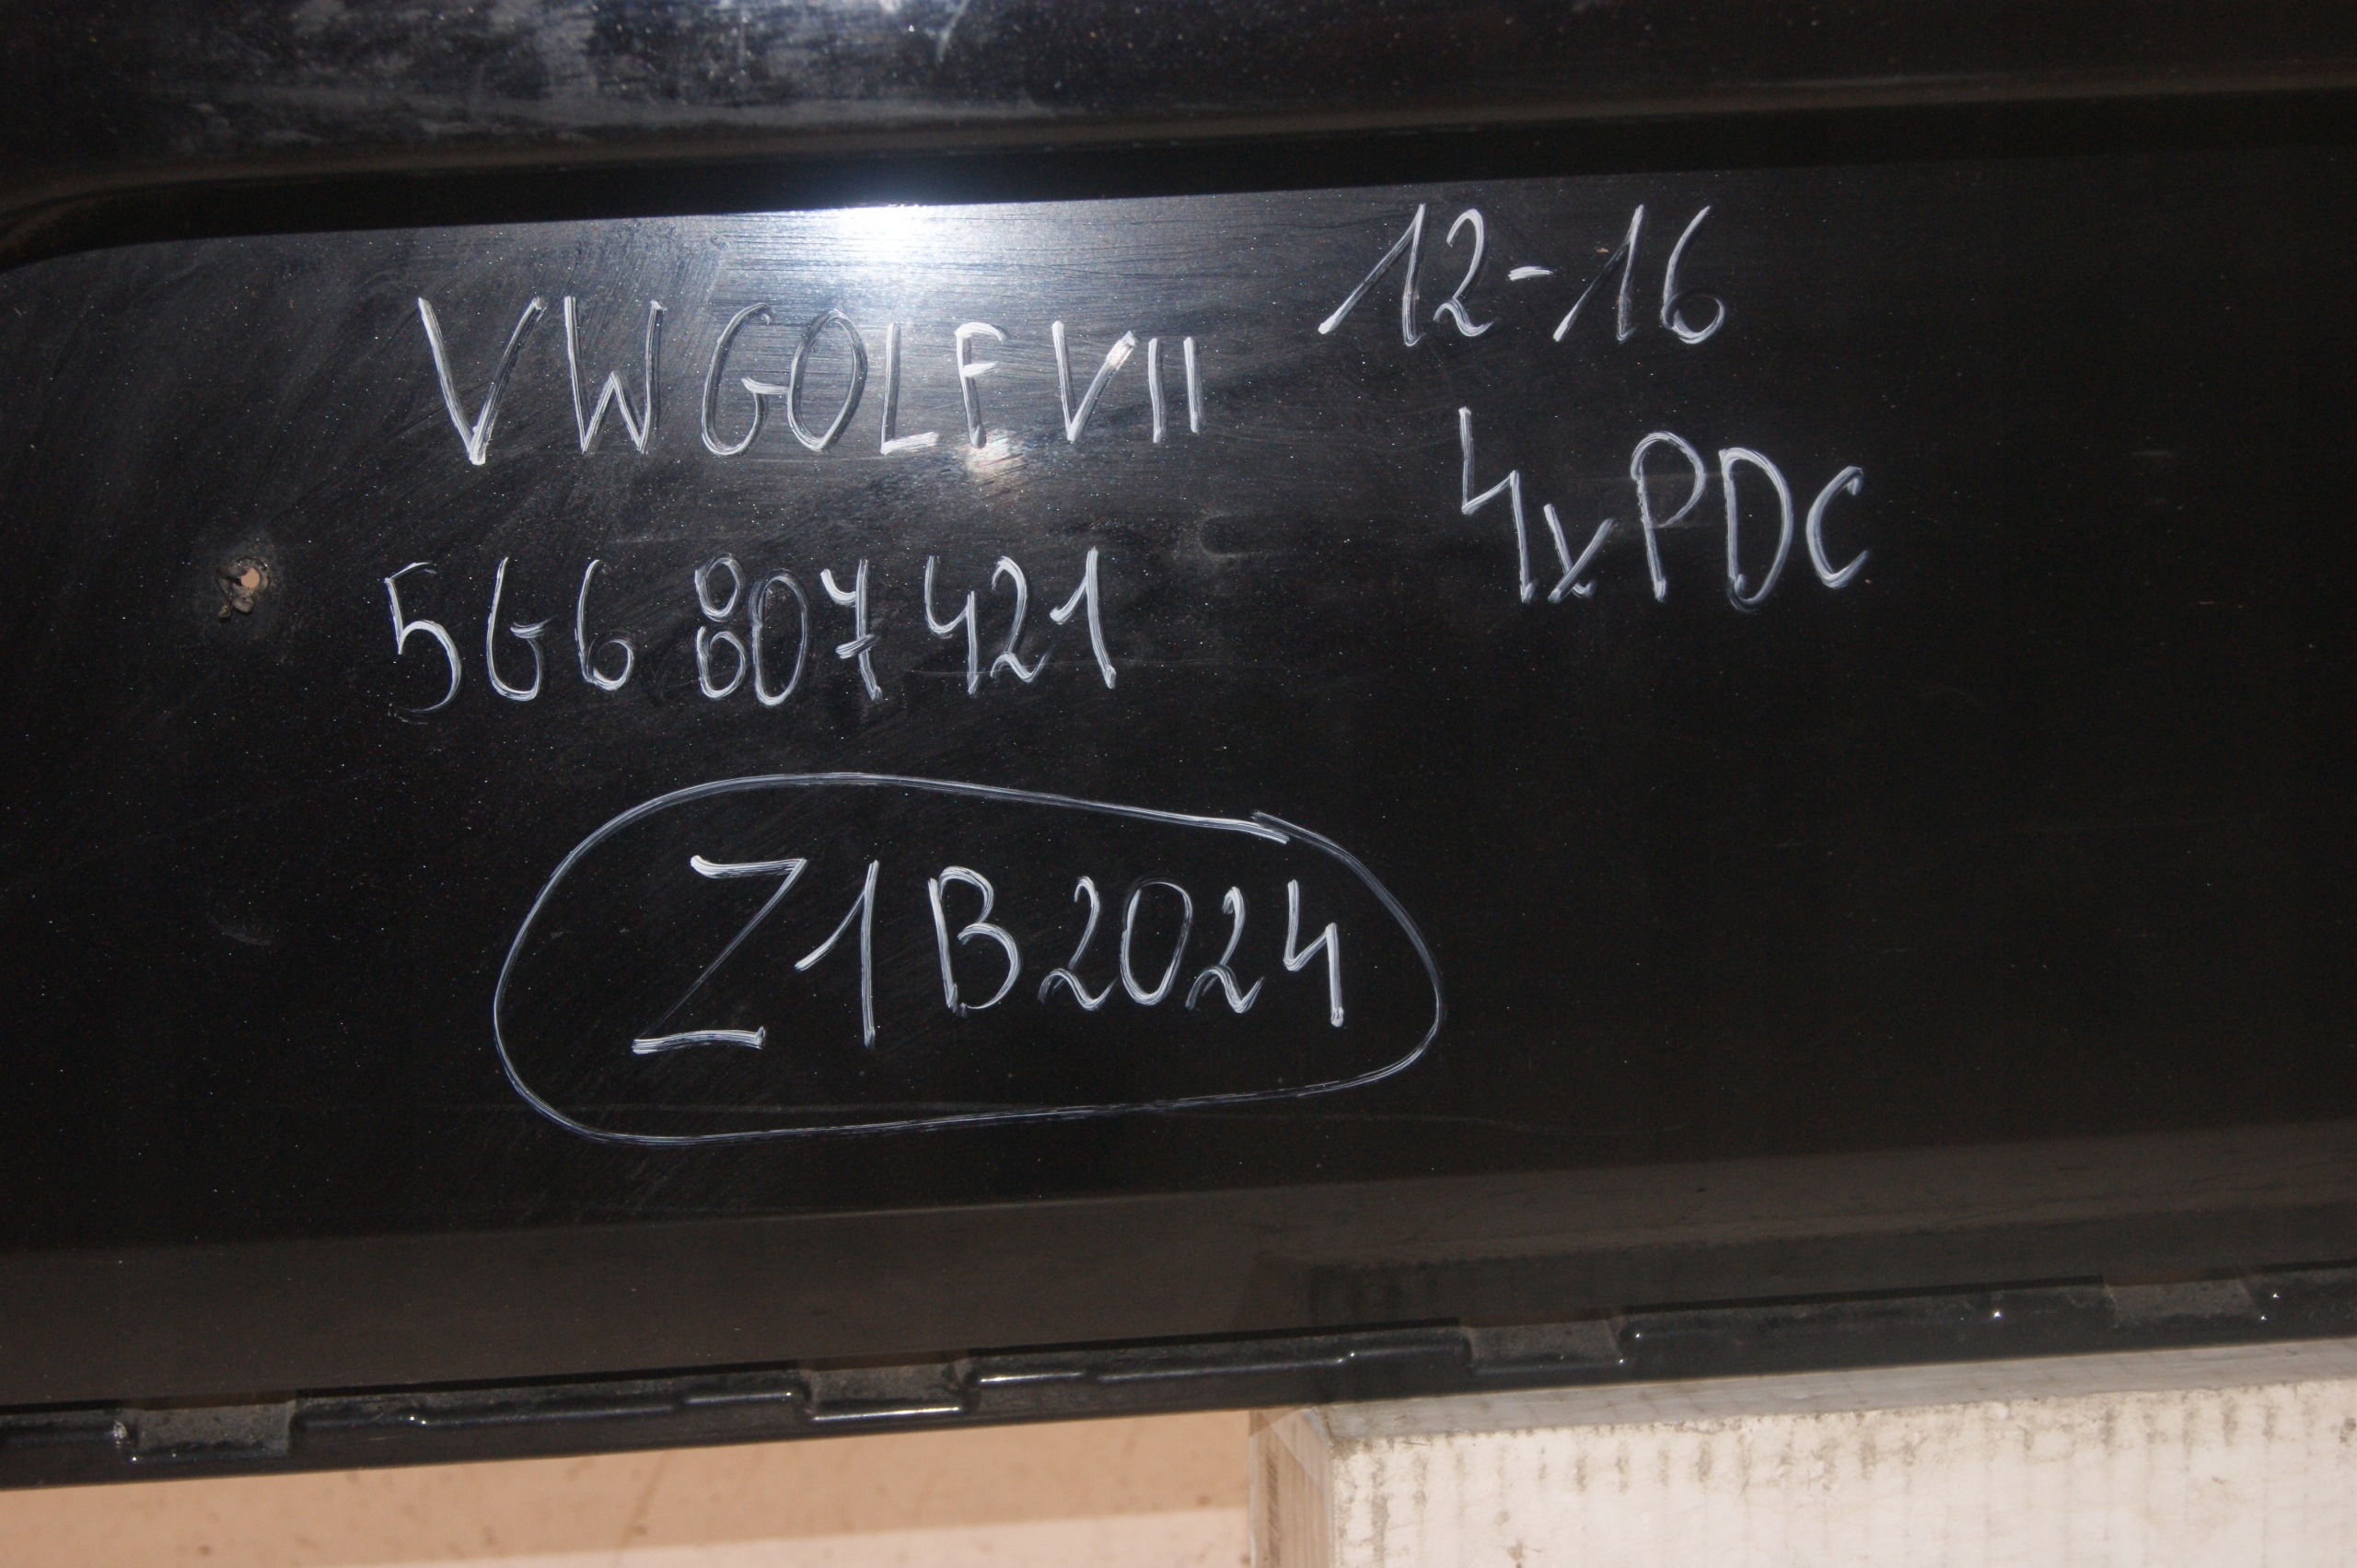 VW GOLF VII 12-16
4xPDC
5G6 807 421
Z1B2024